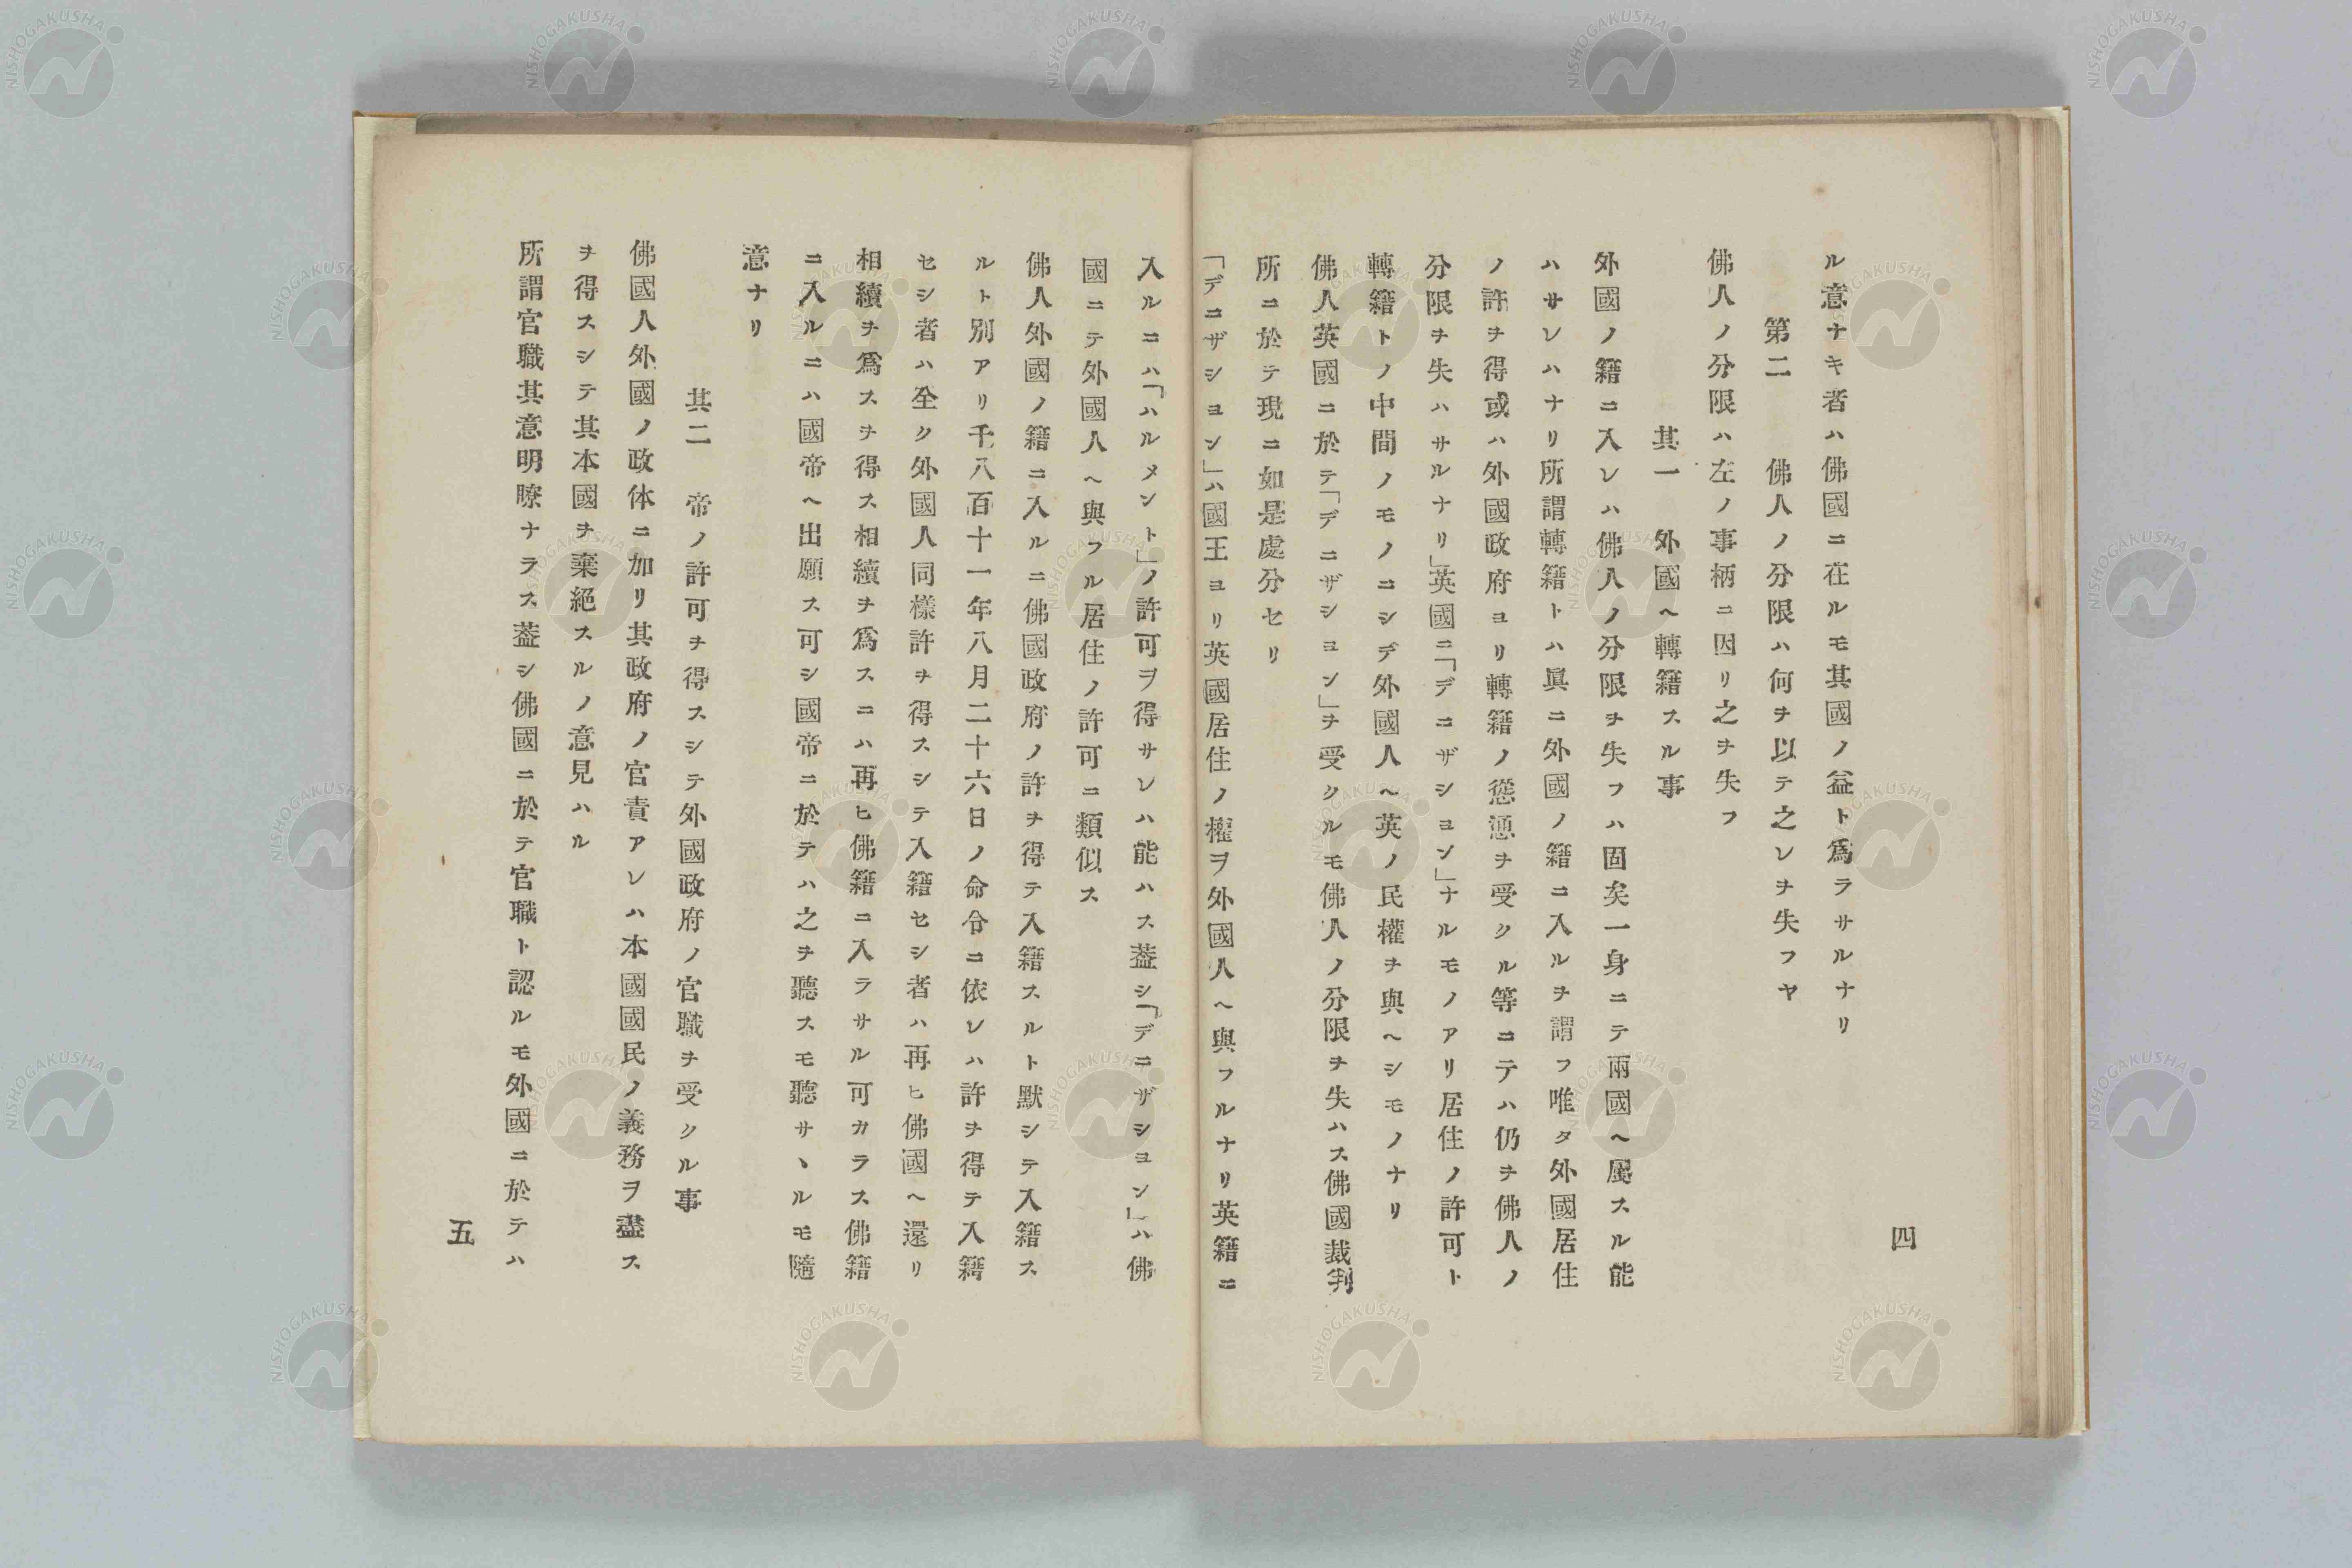 四
ル意ナキ者ハ佛國ニ在ルモ其國ノ益ト爲ラサルナリ
第二 佛人ノ分限ハ何ヲ以テ之レヲ失フヤ
佛人ノ分限ハ左ノ事柄ニ因リ之ヲ失フ
其一 外國ヘ轉籍スル事
外國ノ籍ニ入レハ佛人ノ分限ヲ失フハ固矣一身ニテ兩國ヘ屬スル能
ハサレハナリ所謂轉籍トハ眞ニ外國ノ籍ニ入ルヲ謂フ唯タ外國居住
ノ許ヲ得或ハ外國政府ヨリ轉籍ノ慫慂ヲ受クル等ニテハ仍ヲ佛人ノ
分限ヲ失ハサルナリ」英國ニ「デニザシヨン」ナルモノアリ居住ノ許可ト
轉籍トノ中間ノモノニシデ外國人ヘ英ノ民權ヲ與ヘシモノナリ
佛人英國ニ於テ「デニザシヨン」ヲ受クルモ佛人ノ分限ヲ失ハス佛國裁判
所ニ於テ現ニ如是處分セリ
「デニザシヨン」ハ國王ヨリ英國居住ノ權ヲ外國人ヘ與フルナリ英籍ニ
入ルニハ「ハルメント」ノ許可ヲ得サレハ能ハス葢シ「デニザシヨン」ハ佛
國ニテ外國人ヘ與フル居住ノ許可ニ類似ス
佛人外國ノ籍ニ入ルニ佛國政府ノ許ヲ得テ入籍スルト默シテ入籍ス
ルト別アリ千八百十一年八月二十六日ノ命令ニ依レハ許ヲ得テ入籍
セシ者ハ全ク外國人同樣許ヲ得スシテ入籍セシ者ハ再ヒ佛國ヘ還リ
相續ヲ爲スヲ得ス相續ヲ爲スニハ再ヒ佛籍ニ入ラサル可カラス佛籍
ニ入ルニハ國帝ヘ出願ス可シ國帝ニ於テハ之ヲ聽スモ聽サヽルモ隨
意ナリ
其二 帝ノ許可ヲ得スシテ外國政府ノ官職ヲ受クル事
佛國人外國ノ政体ニ加リ其政府ノ官責アレハ本國國民ノ義務ヲ盡ス
ヲ得スシテ其本國ヲ棄絕スルノ意見ハル
所謂官職其意明瞭ナラス葢シ佛國ニ於テ官職ト認ルモ外國ニ於テハ
五
NISHOGAKUSHA